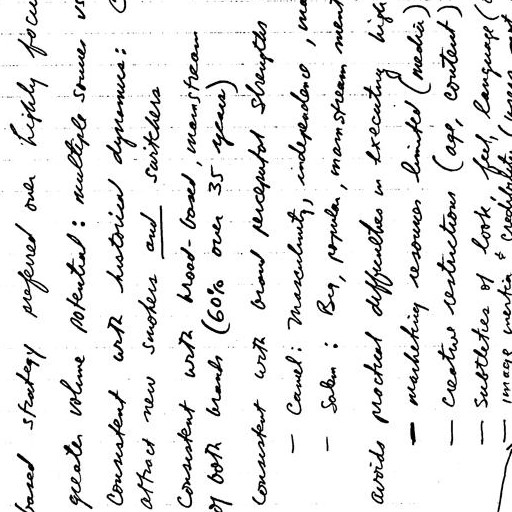 based strategy preferred over highly focu
greater volume potential: multiple sources vs
consistent with historical dynamics: C
attract new smokers and switchers
consistent with broad-based, mainstream
of both brands (60% over 35 years)
consistent with brand perceptual strengths
— Camel: Masculinity, independence, ma
— Salem: Big, popular, mainstream ment
avoids practical difficulties in executing high
— marketing resources limited (media)
— Creative restrictions (age, content)
— Subtleties of look, feel, language (
— image inertia & credibility (users